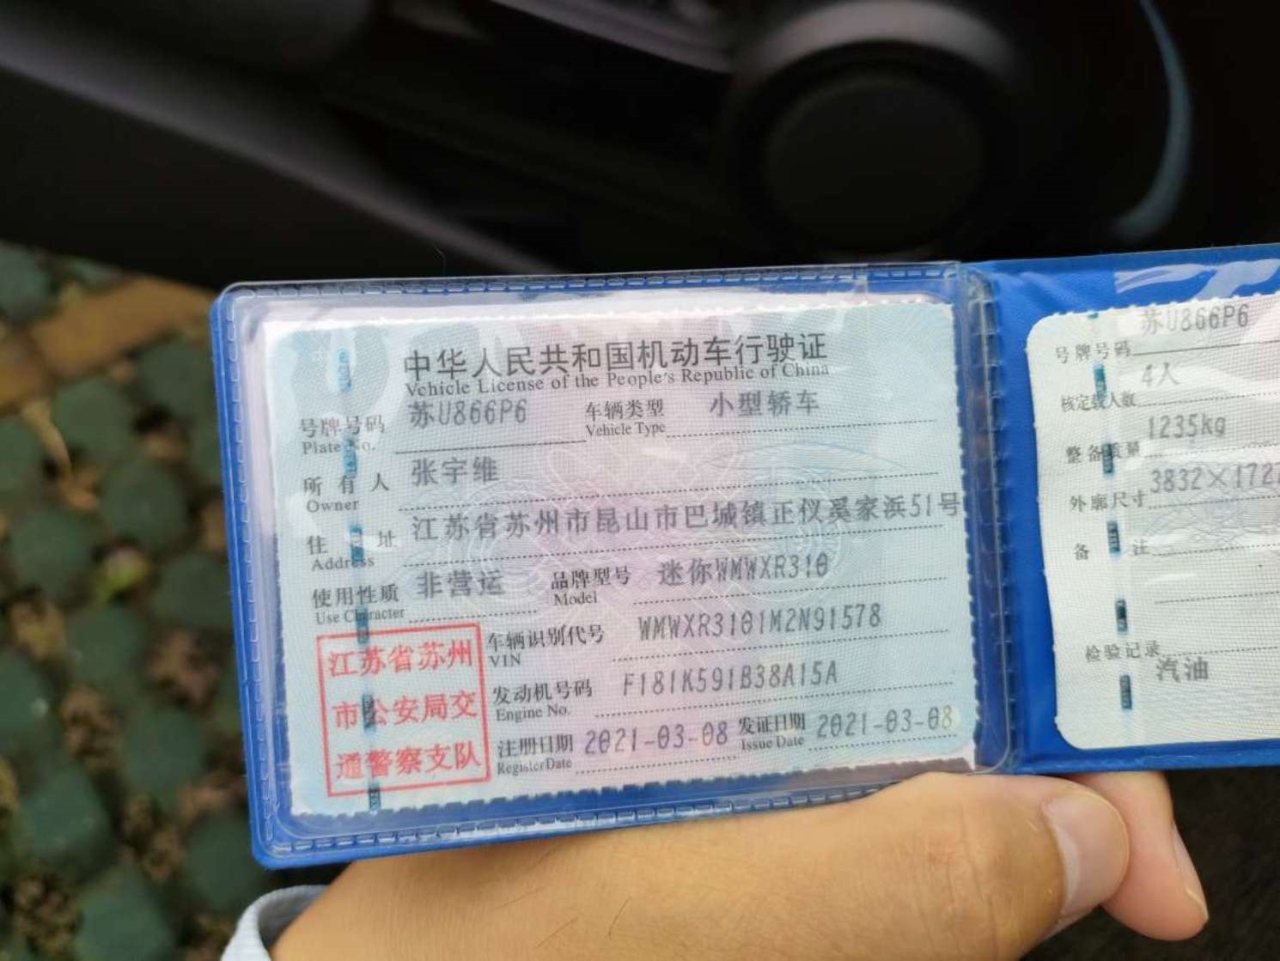 中华人民共和国机动车行驶证
Vehicle License of the People's Republic of China
号牌号码 苏U866P6 车辆类型 小型轿车
Plate No. Vehicle Type
所有人 张宇维
Owner
住址 江苏省苏州市昆山市巴城镇正仪奚家浜51号
Address
使用性质 非营运 品牌型号 迷你WMWXR310
Use Character Model
车辆识别代号 WMWXR3101M2N91578
VIN
发动机号码 F181K591B38A15A
Engine No.
注册日期 2021-03-08 发证日期 2021-03-08
Register Date Issue Date
江苏省苏州
市公安局交
通警察支队
号牌号码 苏U866P6
核定载人数 4人
整备质量 1235kg
外廓尺寸 3832×172
备注
检验记录
汽油